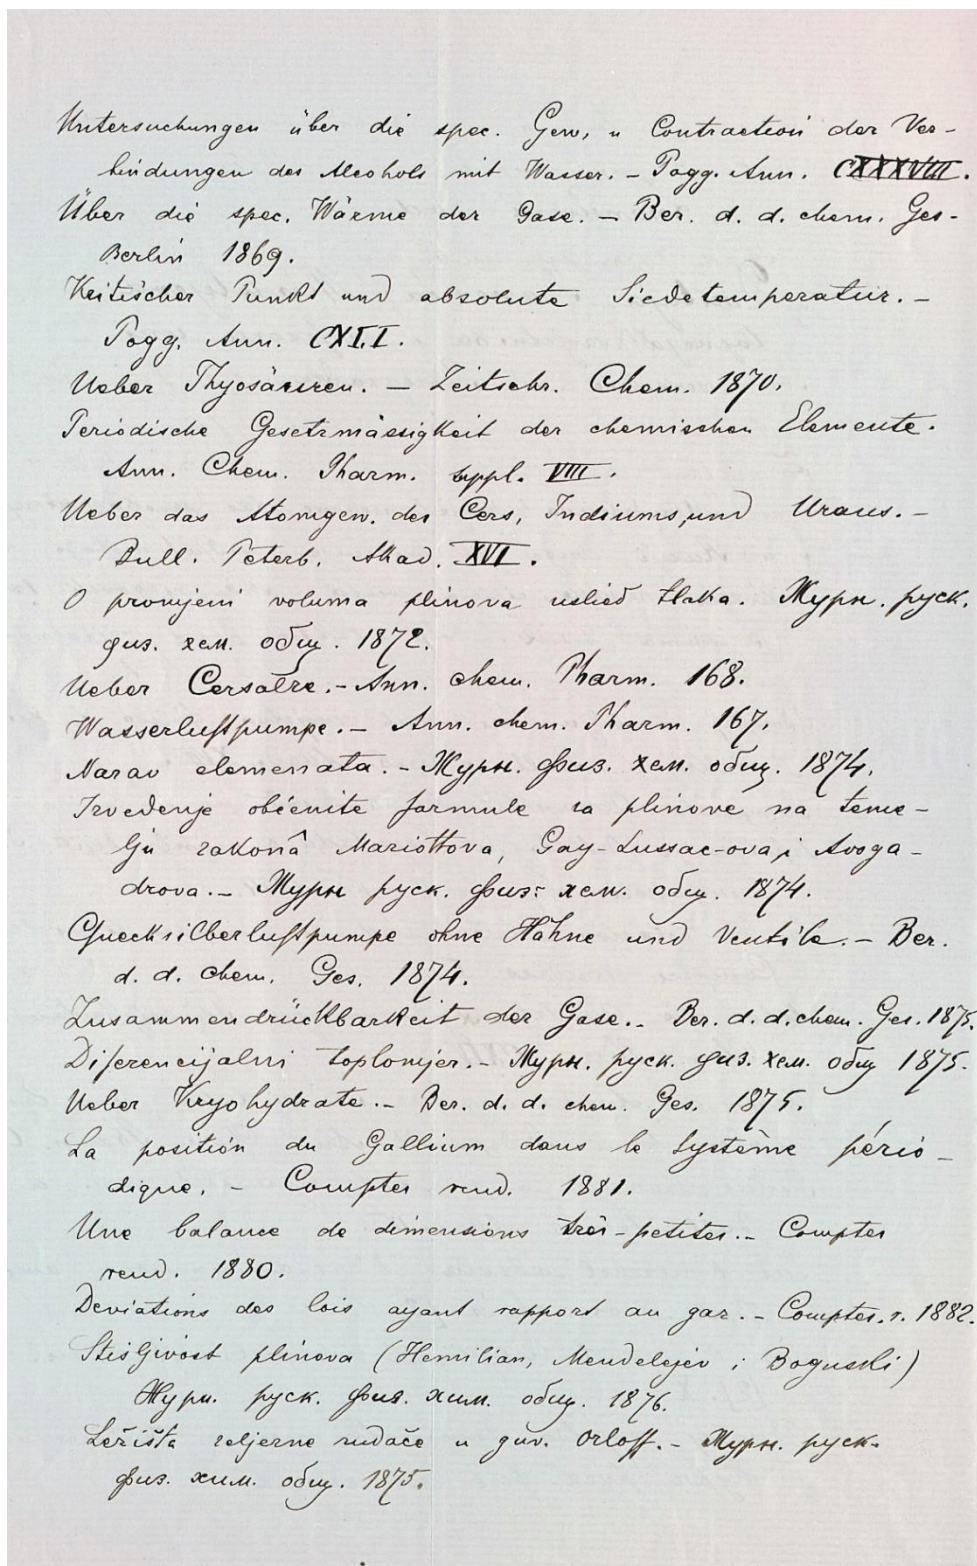 Untersuchungen über die spec. Gew, u Contraction der Ver-
bindungen des Alcohols mit Wasser. – Pogg. Ann. CXXXVIII.
Über die spec. Wärme der Gase. – Ber. d. d. chem. Ges-
Berlin 1869.
Kritischer Punkt und absolute Siedetemperatur. –
Pogg. Ann. CXLI.
Ueber Thyosäuren. – Zeitschr. Chem. 1870.
Periodische Gesetzmässigkeit der chemischen Elemente.
Ann. Chem. Pharm. suppl. VIII.
Ueber das Atomgew. des Cers, Indiums, und Urans. –
Bull. Peterb. Akad. XVI.
O promjeni voluma plinova uslied tlaka. Журн. руск.
физ. хем. общ. 1872.
Ueber Cersalze. – Ann. chem. Pharm. 168.
Wasserluftpumpe. – Ann. chem. Pharm. 167.
Narav elemenata. – Журн. Физ. хем. общ. 1874.
Izvedenje obćenite formule za plinove na teme-
lju zakonâ Mariottova, Gay-Lussac-ova i Avoga-
drova. – Журн руск. физ: хем. общ. 1874.
Quecksilberluftpumpe ohne Hähne und Ventile. – Ber.
d. d. chem. Ges. 1874.
Zusammendrückbarkeit der Gase. – Ber. d. d. chem. Ges. 1875.
Diferencijalni toplomjer. – Журн. руск. физ. хем. общ 1875.
Ueber Kryohydrate. – Ber. d. d. chem. Ges. 1875.
La position du Gallium dans le Système pério-
dique. – Comptes rend. 1881.
Une balance de dimensions très-petites. – Comptes
rend. 1880.
Deviations des lois ayant rapport au gaz. – Comptes. r. 1882.
Stisljivost plinova (Hemilian, Mendelejev i Boguski)
Журн. руск. физ. хим. общ. 1876.
Ležišta zeljezne rudače u guv. Orloff. – Журн. руск.
физ. хим. общ. 1875.